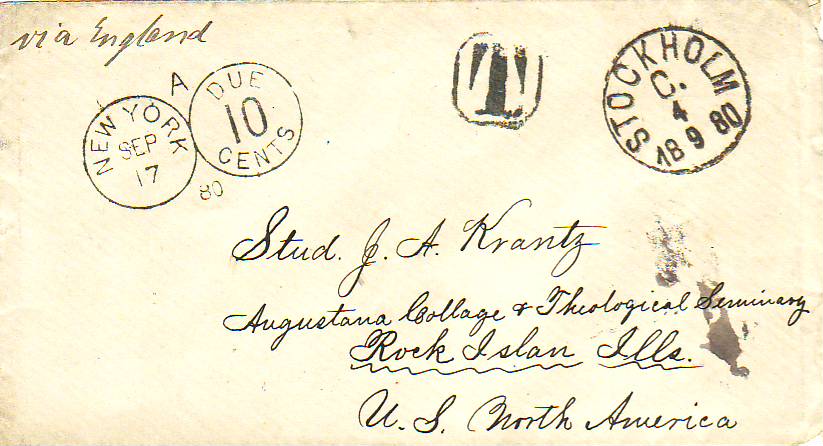 via England
A
NEW YORK
SEP
17
80
DUE
10
CENTS
T
STOCKHOLM
C.
4
18 9 80
Stud. J. A. Krantz
Augustana Collage & Theological Seminary
Rock Islan Ills.
U. S. North America